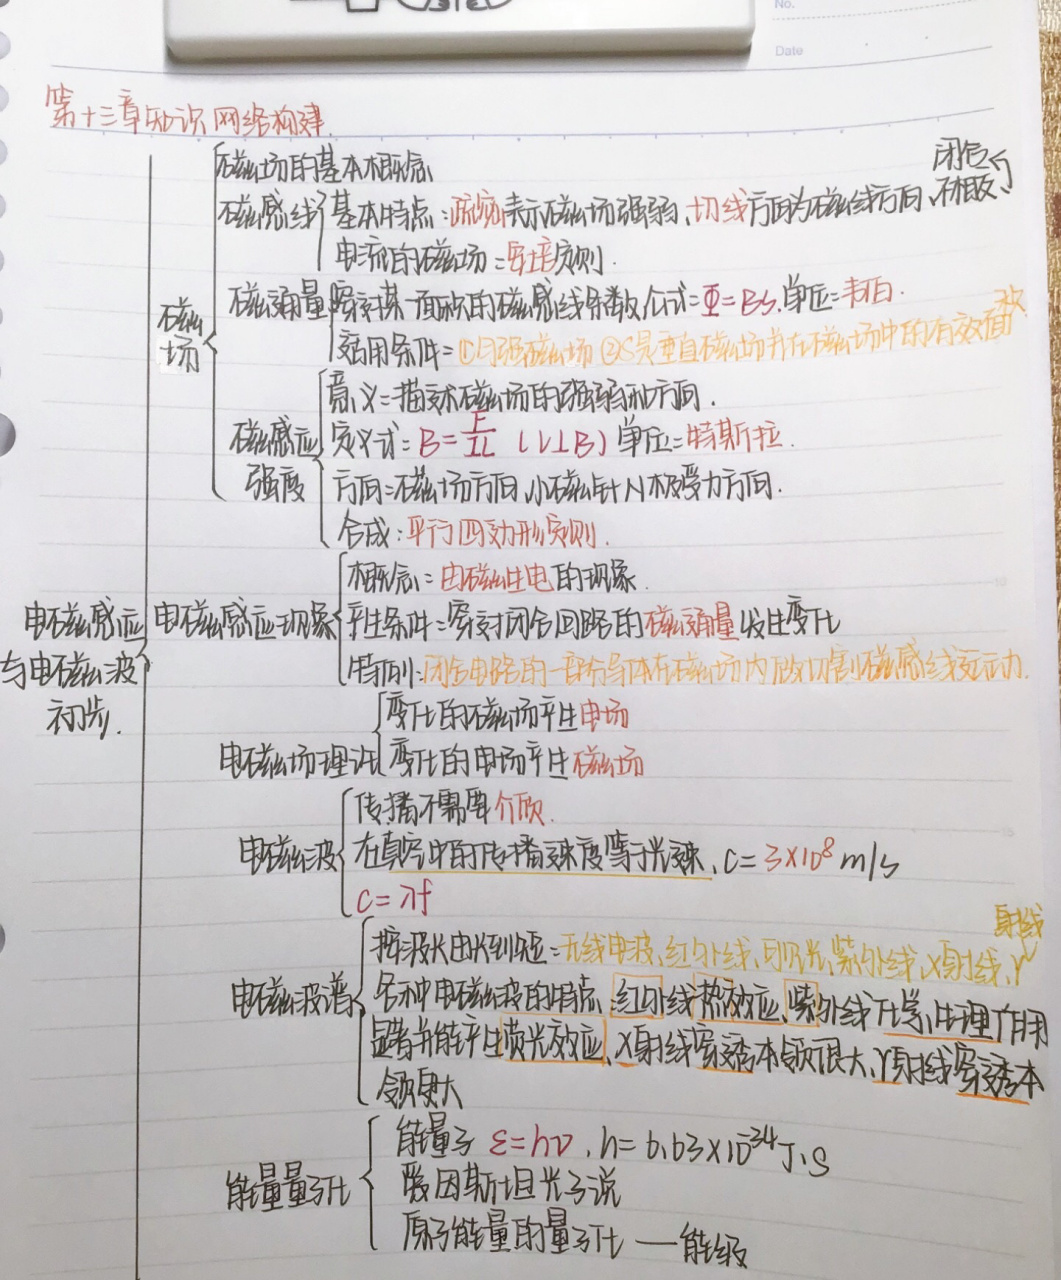 No.
Date
第十三章知识网络构建
磁场的基本概念
闭合
磁感线 基本特点:疏密表示磁场强弱、切线方向为磁线方向、不相交
电流的磁场:安培定则.
磁通量 穿过某一面积的磁感线条数,公式:Φ=BS.单位:韦伯.
适用条件:①匀强磁场 ②S是垂直磁场并在磁场中的有效面
磁场
意义:描述磁场的强弱和方向.
磁感应强度 定义式:B=F/IL (I⊥B) 单位:特斯拉.
方向:磁场方向,小磁针N极受力方向.
合成:平行四边形定则.
概念:由磁生电的现象.
电磁感应与电磁波初步.
电磁感应现象 产生条件:穿过闭合回路的磁通量发生变化
特例:闭合电路的一部分导体在磁场内做切割磁感线运动.
变化的磁场产生电场
电磁场理论 变化的电场产生磁场
传播不需要介质.
电磁波 在真空中的传播速度等于光速、c=3×10⁸m/s
c=λf
射线
按波长由长到短:无线电波、红外线、可见光、紫外线、X射线、γ
电磁波谱 各种电磁波的特点:红外线热效应、紫外线化学、生理作用
显著并能产生荧光效应、X射线穿透本领很大、γ射线穿透本
领更大
能量子 ε=hν,h=6.63×10⁻³⁴J·S
能量量子化 爱因斯坦光子说
原子能量的量子化——能级